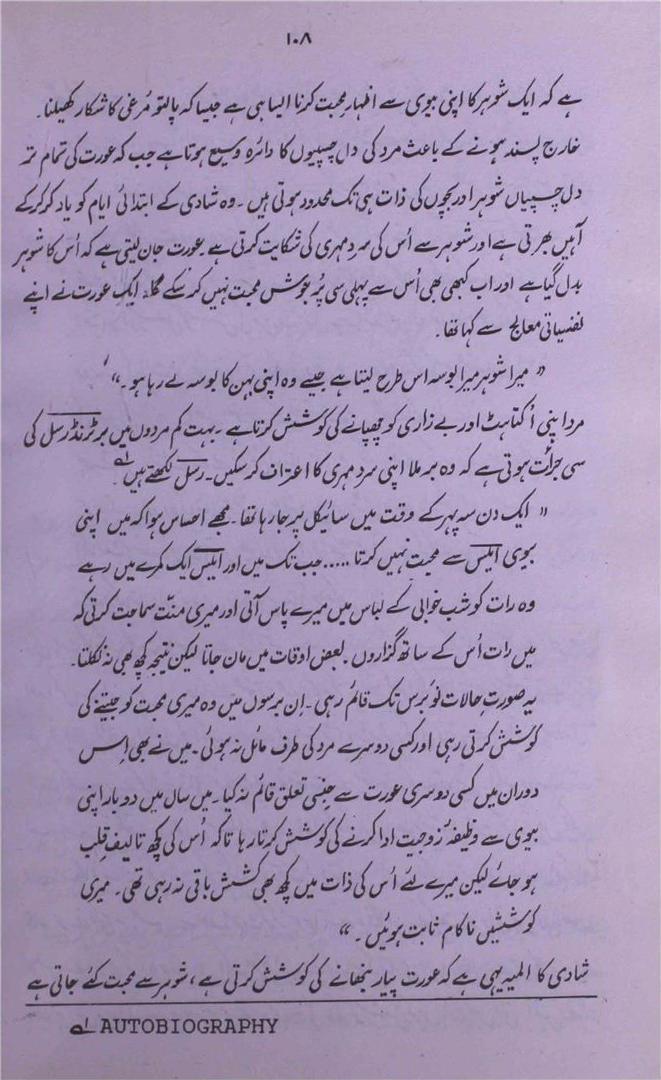 ۱۰۸
ہے کہ ایک شوہر کا اپنی بیوی سے اظہارِ محبت کرنا ایسا ہی ہے جیسا کہ پالتو مُرغی کا شکار کھیلنا۔
خارج پسند ہونے کے باعث مرد کی دل چسپیوں کا دائرہ وسیع ہوتا ہے جب کہ عورت کی تمام تر
دل چسپیاں شوہر اور بچوں کی ذات ہی تک محدود ہوتی ہیں۔ وہ شادی کے ابتدائی ایام کو یاد کر کرکے
آہیں بھرتی ہے اور شوہر سے اُس کی سرد مہری کی شکایت کرتی ہے۔ عورت جان لیتی ہے کہ اُس کا شوہر
بدل گیا ہے اور اب کبھی بھی اُس سے پہلی سی پُرجوش محبت نہیں کر سکے گا۔ ایک عورت نے اپنے
نفسیاتی معالج سے کہا تھا۔
" میرا شوہر میرا بوسہ اس طرح لیتا ہے جیسے وہ اپنی بہن کا بوسہ لے رہا ہو۔"
مرد اپنی اُکتاہٹ اور بے زاری کو چھپانے کی کوشش کرتا ہے۔ بہت کم مردوں میں برٹرنڈرسل کی
سی جرأت ہوتی ہے کہ وہ برملا اپنی سرد مہری کا اعتراف کر سکیں۔ رسل لکھتے ہیں ؎۱
" ایک دن سہ پہر کے وقت میں سائیکل پر جا رہا تھا۔ مجھے احساس ہوا کہ میں اپنی
بیوی ایلس سے محبت نہیں کرتا ..... جب تک میں اور ایلس ایک کمرے میں رہے
وہ رات کو شب خوابی کے لباس میں میرے پاس آتی اور میری منّت سماجت کرتی کہ
میں رات اُس کے ساتھ گزاروں۔ بعض اوقات میں مان جاتا لیکن نتیجہ کچھ بھی نہ نکلتا۔
یہ صورتِ حالات نو برس تک قائم رہی۔ اِن برسوں میں وہ میری محبت کو جیتنے کی
کوشش کرتی رہی اور کسی دوسرے مرد کی طرف مائل نہ ہوئی۔ میں نے بھی اِس
دوران میں کسی دوسری عورت سے جنسی تعلق قائم نہ کیا۔ میں سال میں دو بار اپنی
بیوی سے وظیفۂ زوجیت ادا کرنے کی کوشش کرتا رہا تاکہ اُس کی کچھ تالیفِ قلب
ہو جائے لیکن میرے لئے اُس کی ذات میں کچھ بھی کشش باقی نہ رہی تھی۔ میری
کوششیں ناکام ثابت ہوئیں۔"
شادی کا المیہ یہی ہے کہ عورت پیار نبھانے کی کوشش کرتی ہے، شوہر سے محبت کئے جاتی ہے
؎۱ AUTOBIOGRAPHY